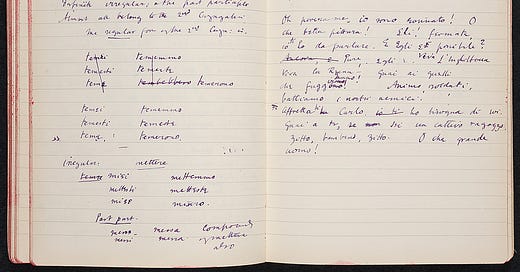 Infinite irregular, & the past participle
Almost all belong to the 2nd Conjugation
The regular for of the 2nd Conj: is.
temei tememmo
temesti temeste
temè temebbero temerono
temei tememmo
temesti temeste
temè : temerono,
Irregular: mettere
temere misi mettemmo
mettesti metteste
mise misero.
Past part.
messo. messa compounds
messi messe of mettere
also
Oh povera me, io sono rovinato! O
che bella pittura! Ehi! fermate,
io le ho da parlare. È egli possibile?
Ancora Pure, egli è. Viva l'Inghilterra
Viva la Regina! Guai ai quelli
che fuggono! Animo soldati,
battiamo i nostri nemici.
Affrettati Carlo, io ho bisogna di voi.
Guai a te, se sei un cattivo ragazzo.
Zitto, bambino, zitto. O che grande
uomo!